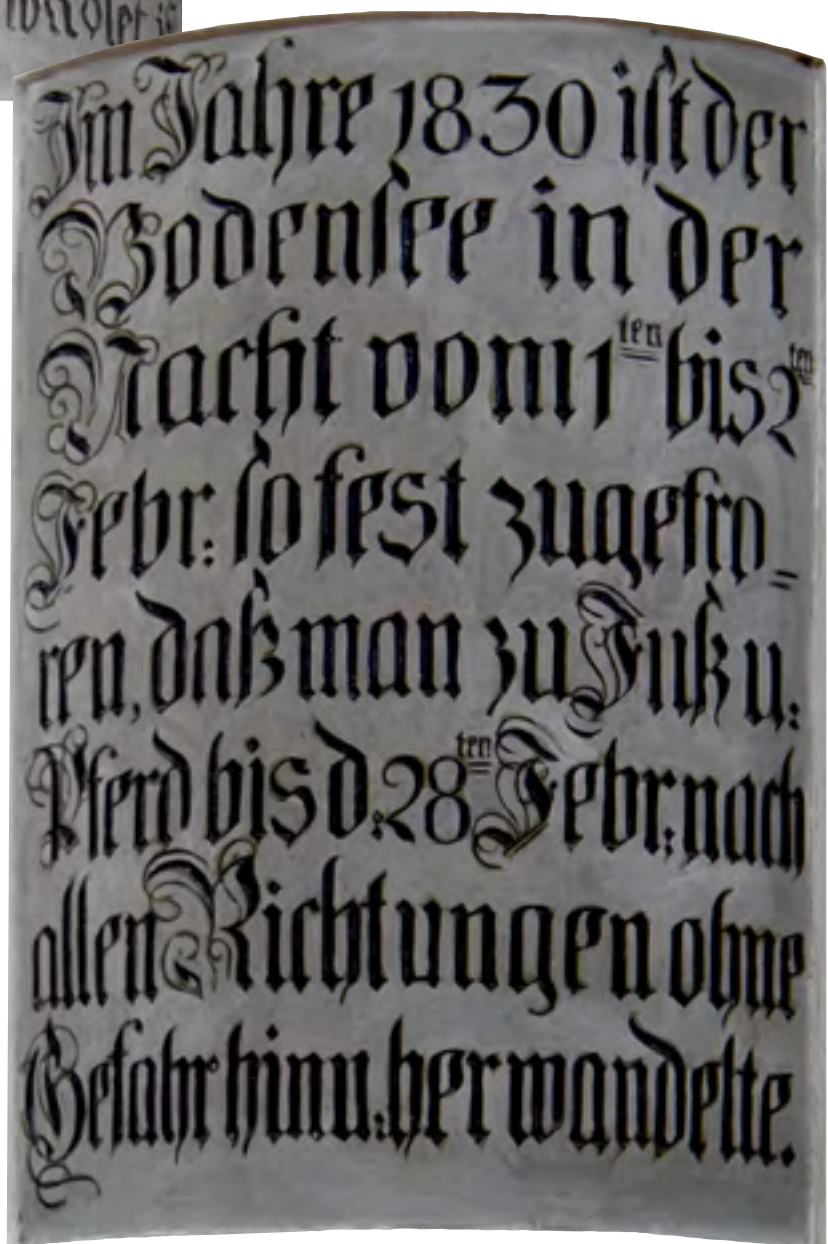 Im Jahre 1830 ist der
Bodensee in der
Nacht vom 1ten bis 2ten
Febr: so fest zugefro=
ren, daß man zu Fuß u:
Pferd bis d. 28ten Febr: nach
allen Richtungen ohne
Gefahr hin u: her wandelte.